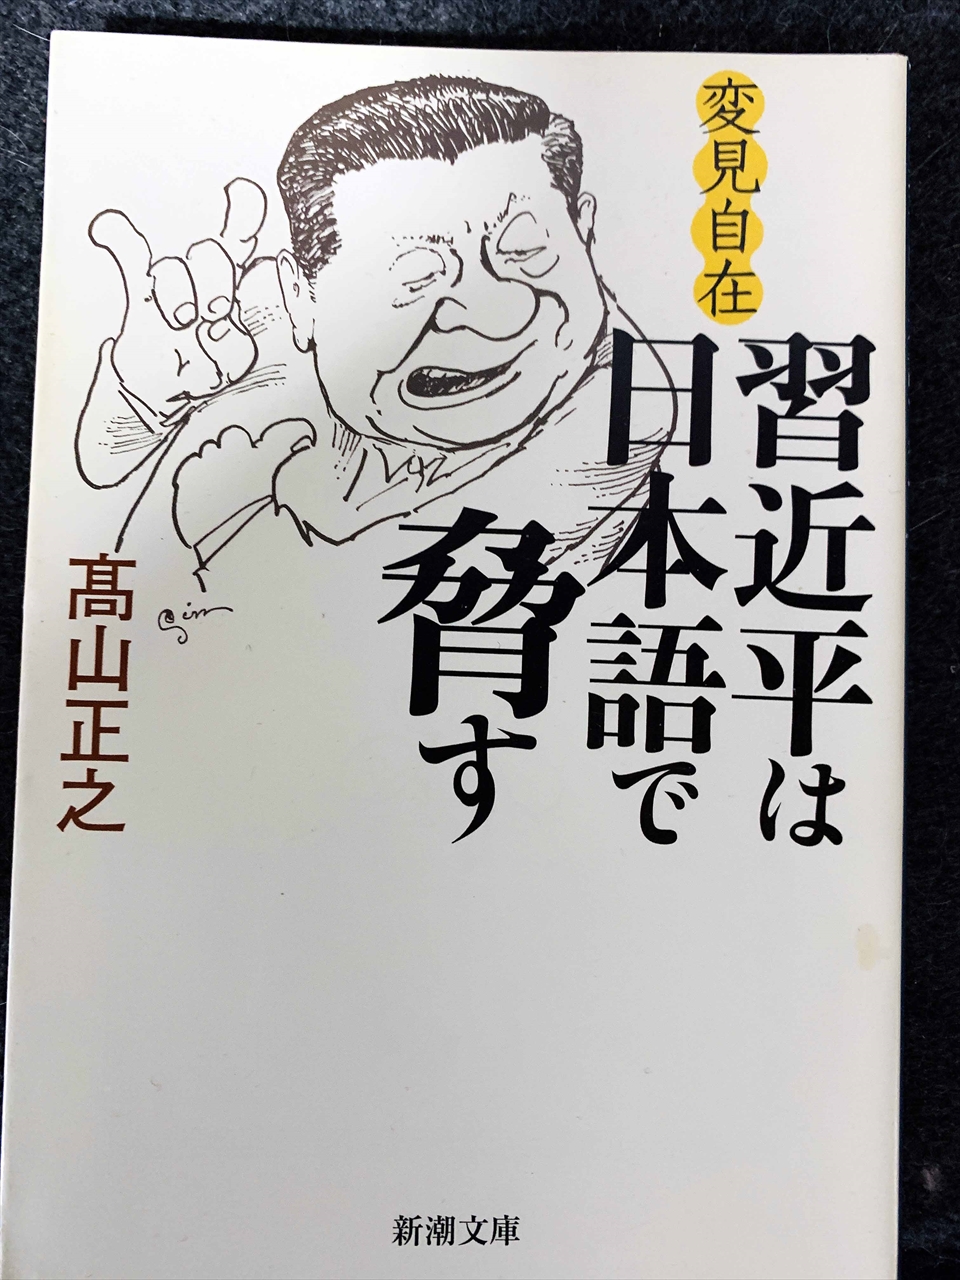 変見自在
習近平は
日本語で
脅す
髙山正之
gim
新潮文庫